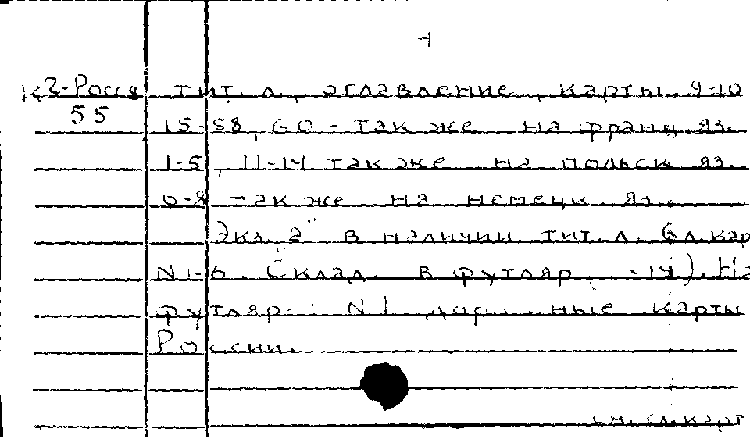 К2-Росс тит. л., оглавление, карты 9-10
55
15-58, 60 - также на франц. яз.
1-5, 11-14 также на польск. яз.
6-8 также на немецк. яз.
Экз. "а" в наличии тит. л. 6 л. кар
N1-6. Склад. в футляр -14). На
футляр: N 1 ные карты
России.